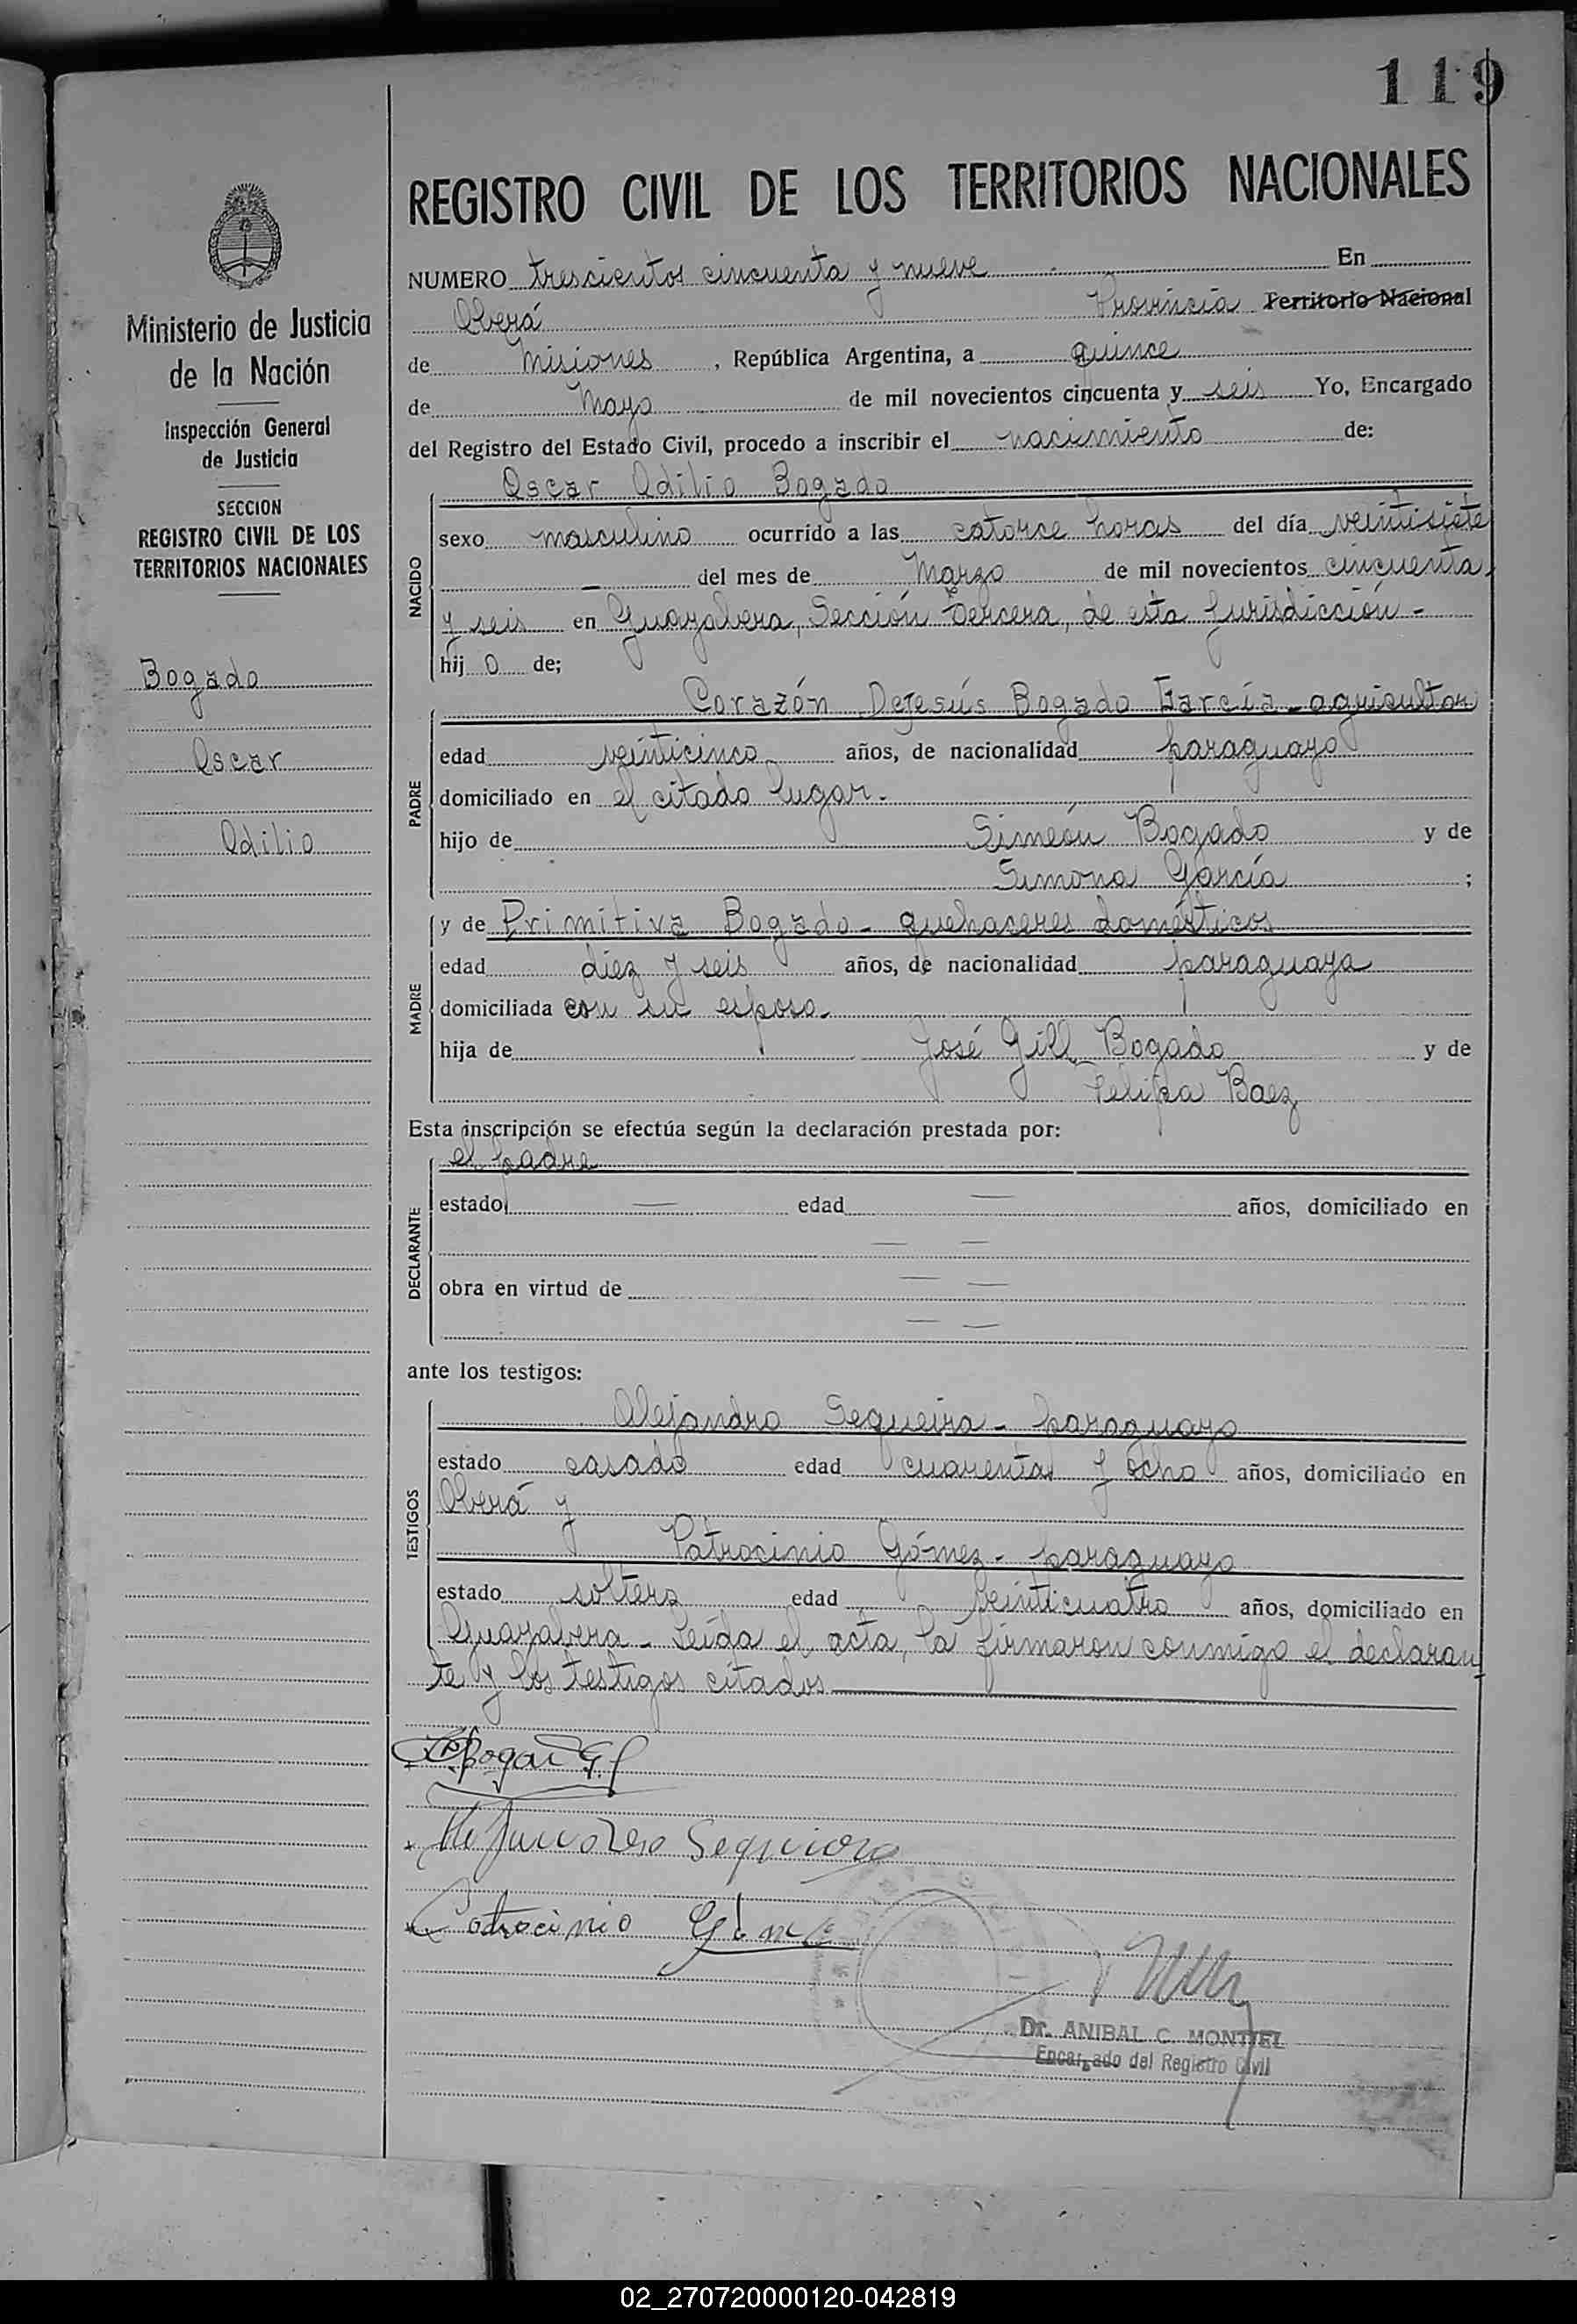 119
REGISTRO CIVIL DE LOS TERRITORIOS NACIONALES
Ministerio de Justicia
de la Nación
Inspección General
de Justicia
SECCION
REGISTRO CIVIL DE LOS
TERRITORIOS NACIONALES
Bogado
Oscar
Odilio
NUMERO trescientos cincuenta y nueve En
Oberá Provincia Territorio Nacional
de Misiones, República Argentina, a quince
de Mayo de mil novecientos cincuenta y seis Yo, Encargado
del Registro del Estado Civil, procedo a inscribir el nacimiento de:
NACIDO
Oscar Odilio Bogado
sexo masculino ocurrido a las catorce horas del día veintisiete
— del mes de Marzo de mil novecientos cincuenta
y seis en Guayabera, Sección Tercera, de esta Jurisdicción -
hij o de;
PADRE
Corazón DeJesús Bogado García - agricultor
edad veinticinco años, de nacionalidad paraguayo
domiciliado en el citado lugar.
hijo de Simeón Bogado y de
Simona García ;
MADRE
y de Primitiva Bogado - quehaceres domésticos
edad diez y seis años, de nacionalidad paraguaya
domiciliada con su esposo.
hija de José Gill Bogado y de
Felipa Baez
Esta inscripción se efectúa según la declaración prestada por:
DECLARANTE
el padre
estado — edad — años, domiciliado en
— —
obra en virtud de — —
— —
ante los testigos:
TESTIGOS
Alejandro Sequeira - paraguayo
estado casado edad cuarenta y ocho años, domiciliado en
Oberá y
Patrocinio Gómez - paraguayo
estado soltero edad veinticuatro años, domiciliado en
Guayabera - Leída el acta, la firmaron conmigo el declaran-
te y los testigos citados
Sequeira
Patrocinio Gómez
Dr. ANIBAL C. MONTIEL
Encargado del Registro Civil
02_270720000120-042819